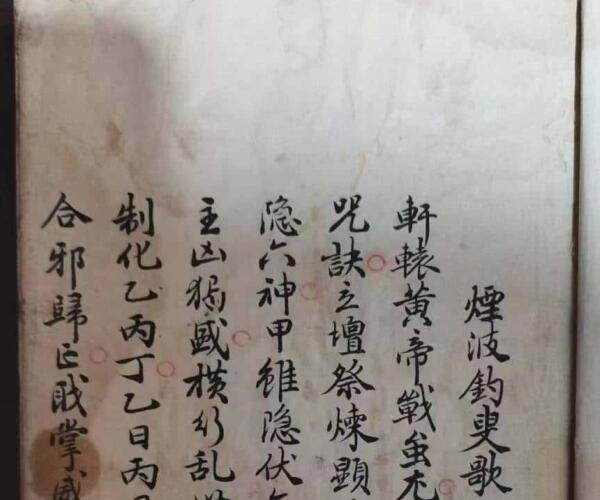 煙波釣叟歌
軒轅黃帝戰蚩尤
咒訣立壇祭煉顯
隐六神甲雖隐伏
主凶猖盛橫行乱
制化乙丙丁乙日丙
合邪歸正戝掌